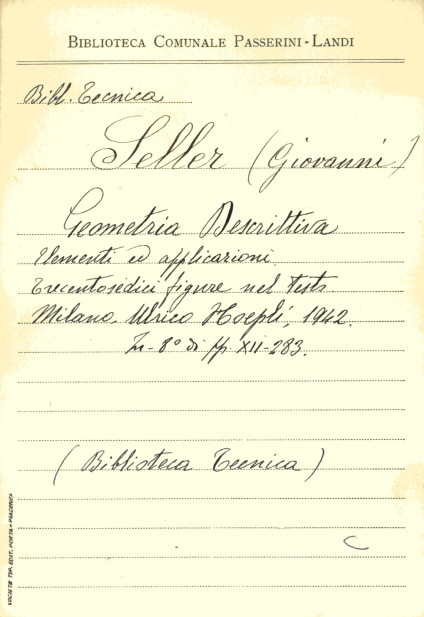 BIBLIOTECA COMUNALE PASSERINI-LANDI
Bibl. Tecnica
Seller (Giovanni)
Geometria Descrittiva
Elementi ed applicazioni
Trecentosedici figure nel testo
Milano Ulrico Hoepli, 1942.
In-8° di pp. XII-283.
(Biblioteca Tecnica)
SOCIETÀ TIP. EDIT. PORTA - PIACENZA